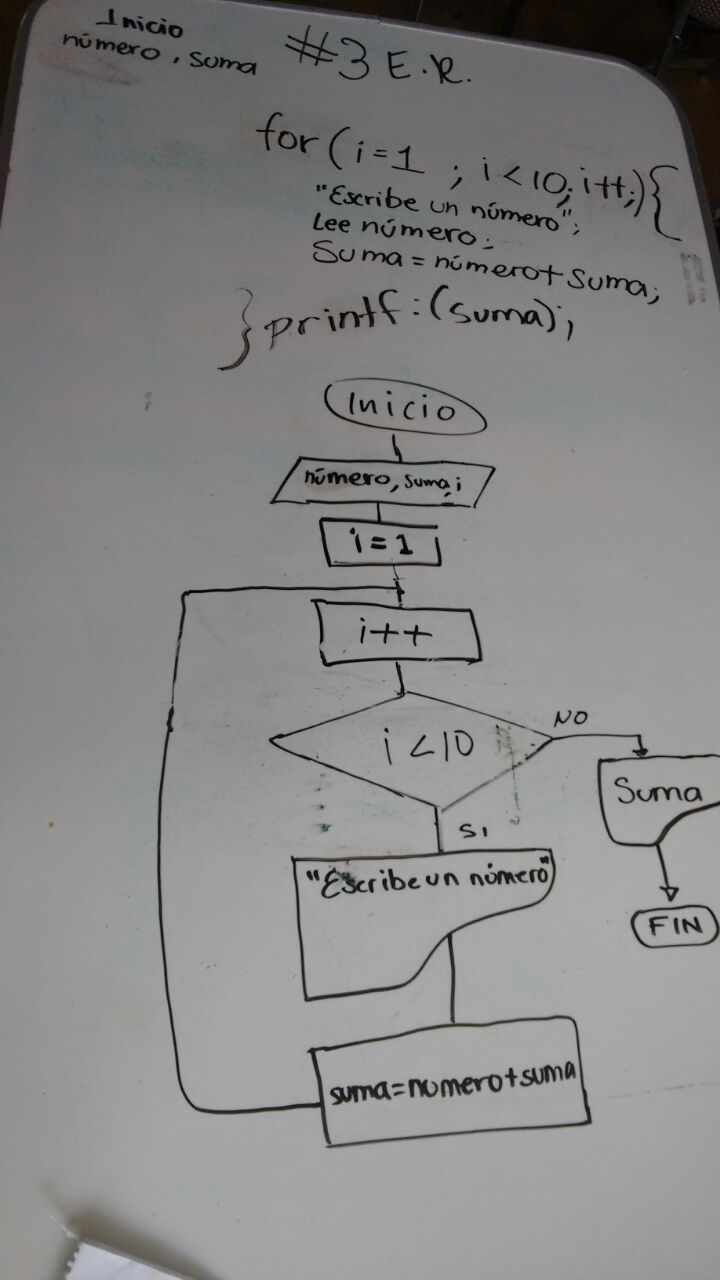 Inicio
número, suma
#3 E.R.
for (i=1 ; i<10; i++;){
"Escribe un número";
Lee número;
Suma = número + suma;
} printf:(suma);
Inicio
número, suma, i
i=1
i++
i<10
NO
Suma
FIN
SI
"Escribe un número"
suma=numero+suma